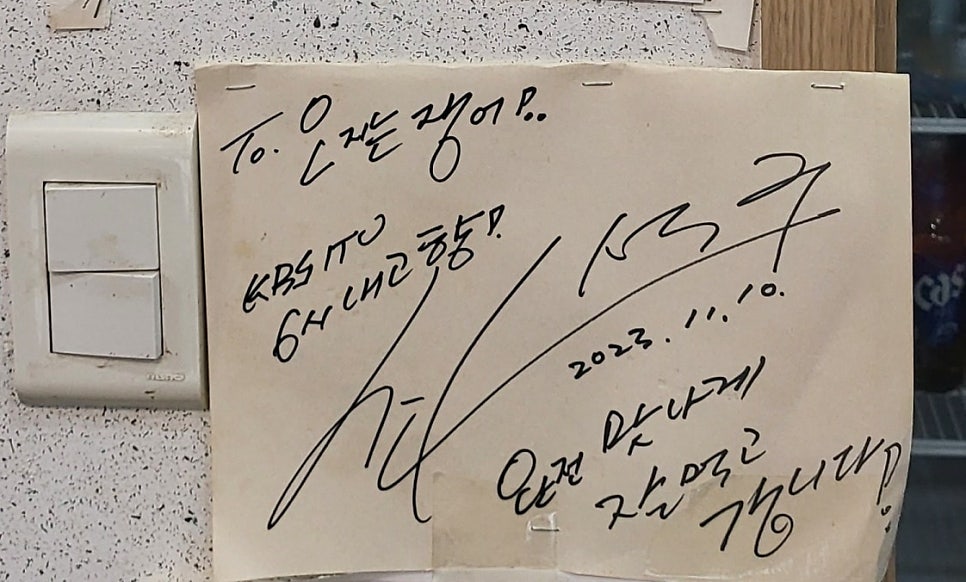 To. 온지는 쟁어!..
KBS 1TV
6시 내고향!
2023. 11. 10.
완전 맛나게
잘 먹고
갑니다!
Cass